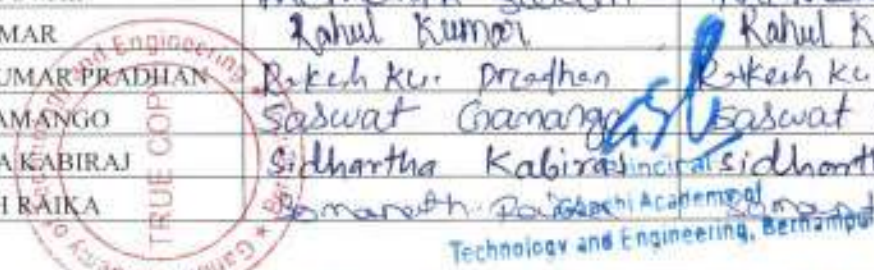 MAR Rahul Kumar Rahul K
UMAR PRADHAN Rakesh Ku. Pradhan Rakesh Ku
AMANGO Saswat Gamango Saswat
A KABIRAJ Sidhartha Kabiraj Sidharth
H RAIKA Somanath Raika
and Engineering
TRUE COPY
Principal
Gandhi Academy of
Technology and Engineering, Berhampur